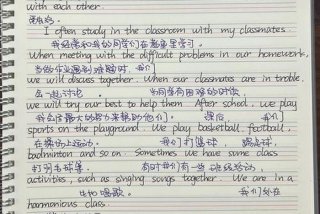 with each other.
I often study in the classroom with my classmates.
我经常和我的同学们在教室里学习。
When meeting with the difficult problems in our homework,
当作业遇到难题时，我们
we will discuss together. When our classmates are in trouble,
会一起讨论。当同学有困难的时候，
we will try our best to help them. After school, we play
我会尽最大的努力来帮助他们。课后，我们
sports on the playground. We play basketball, football,
在操场上运动。我们打篮球，踢足球，
badminton and so on. Sometimes we have some class
打羽毛球等。有时我们有一些班级活动，
activities, such as singing songs together. We are in a
比如唱歌。我们处在
harmonious class.